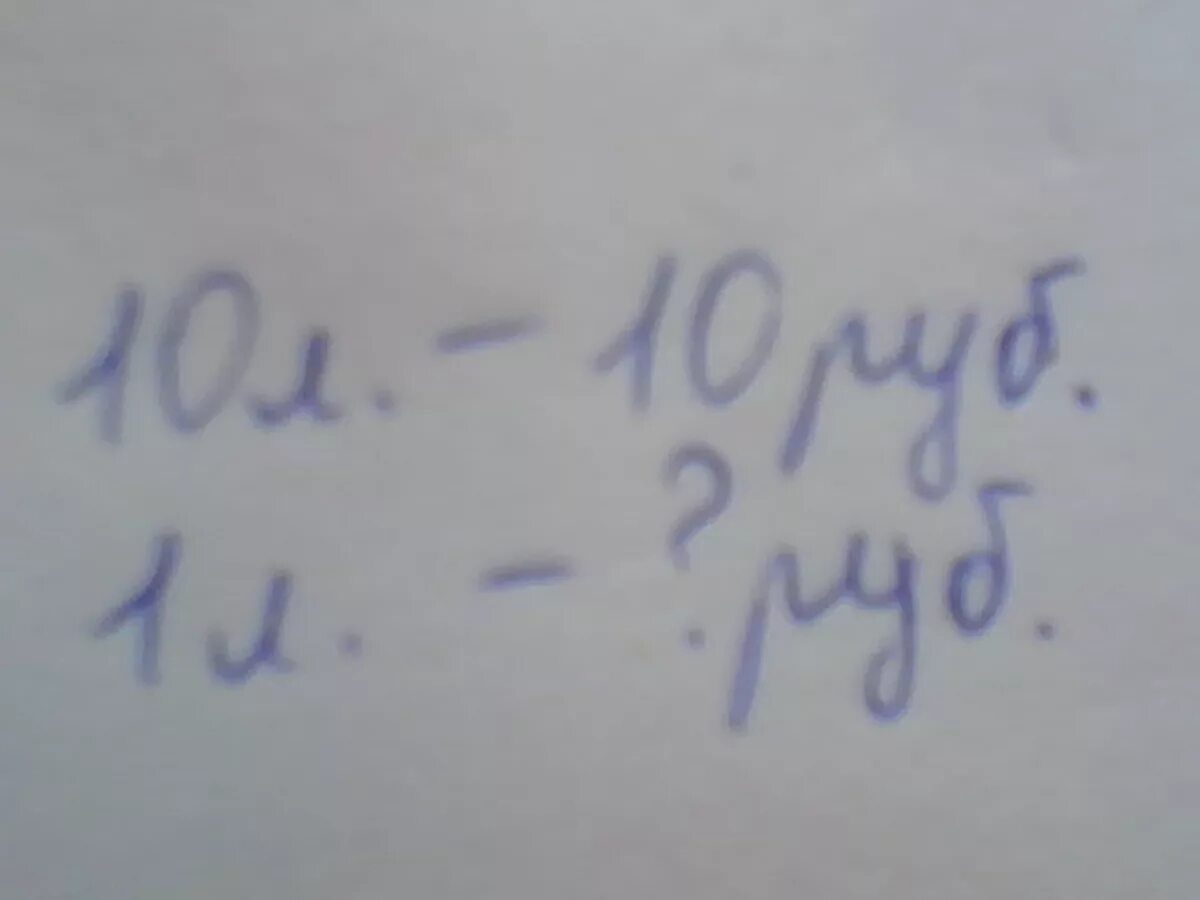 10л. - 10 руб.
1л. - ? руб.